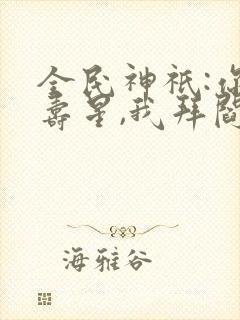 全民神祇:你
壽星,我拜閻
海雅谷